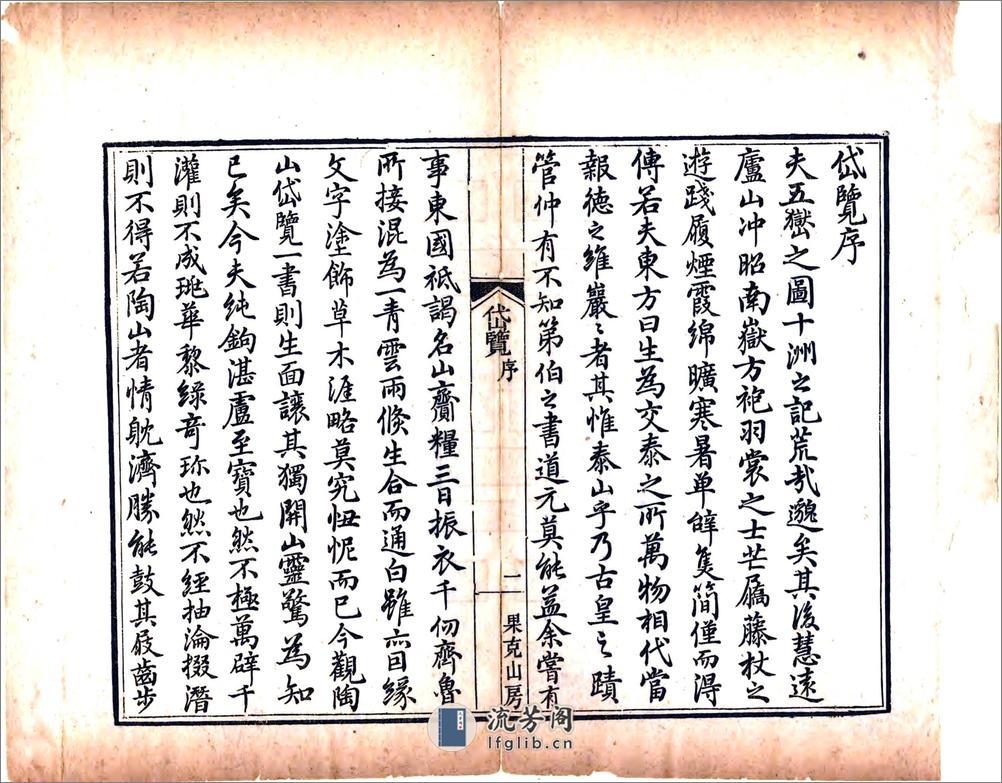 岱覽序
夫五嶽之圖十洲之記荒哉邈矣其後慧遠
廬山冲昭南嶽方袍羽裳之士芒屩藤杖之
遊踐履煙霞綿曠寒暑单辭隻簡僅而得
傳若夫東方曰生為交泰之所萬物相代當
報德之維巖〻者其惟泰山乎乃古皇之蹟
管仲有不知第伯之書道元莫能益余嘗有
岱覽 序
二
果克山房
事東國祗謁名山齎糧三日振衣千仞齊魯
所接混為一青雲雨倐生合而通白雖亦目緣
文字塗飾草木涯略莫究忸怩而已今觀陶
山岱覽一書則生面讓其獨開山靈驚為知
已矣今夫純鉤湛盧至寶也然不極萬辟千
灌則不成珧華黎綠奇珎也然不經抽淪掇潛
則不得若陶山者情躭濟勝能鼓其屐齒步
流芳阁
lfglib.cn